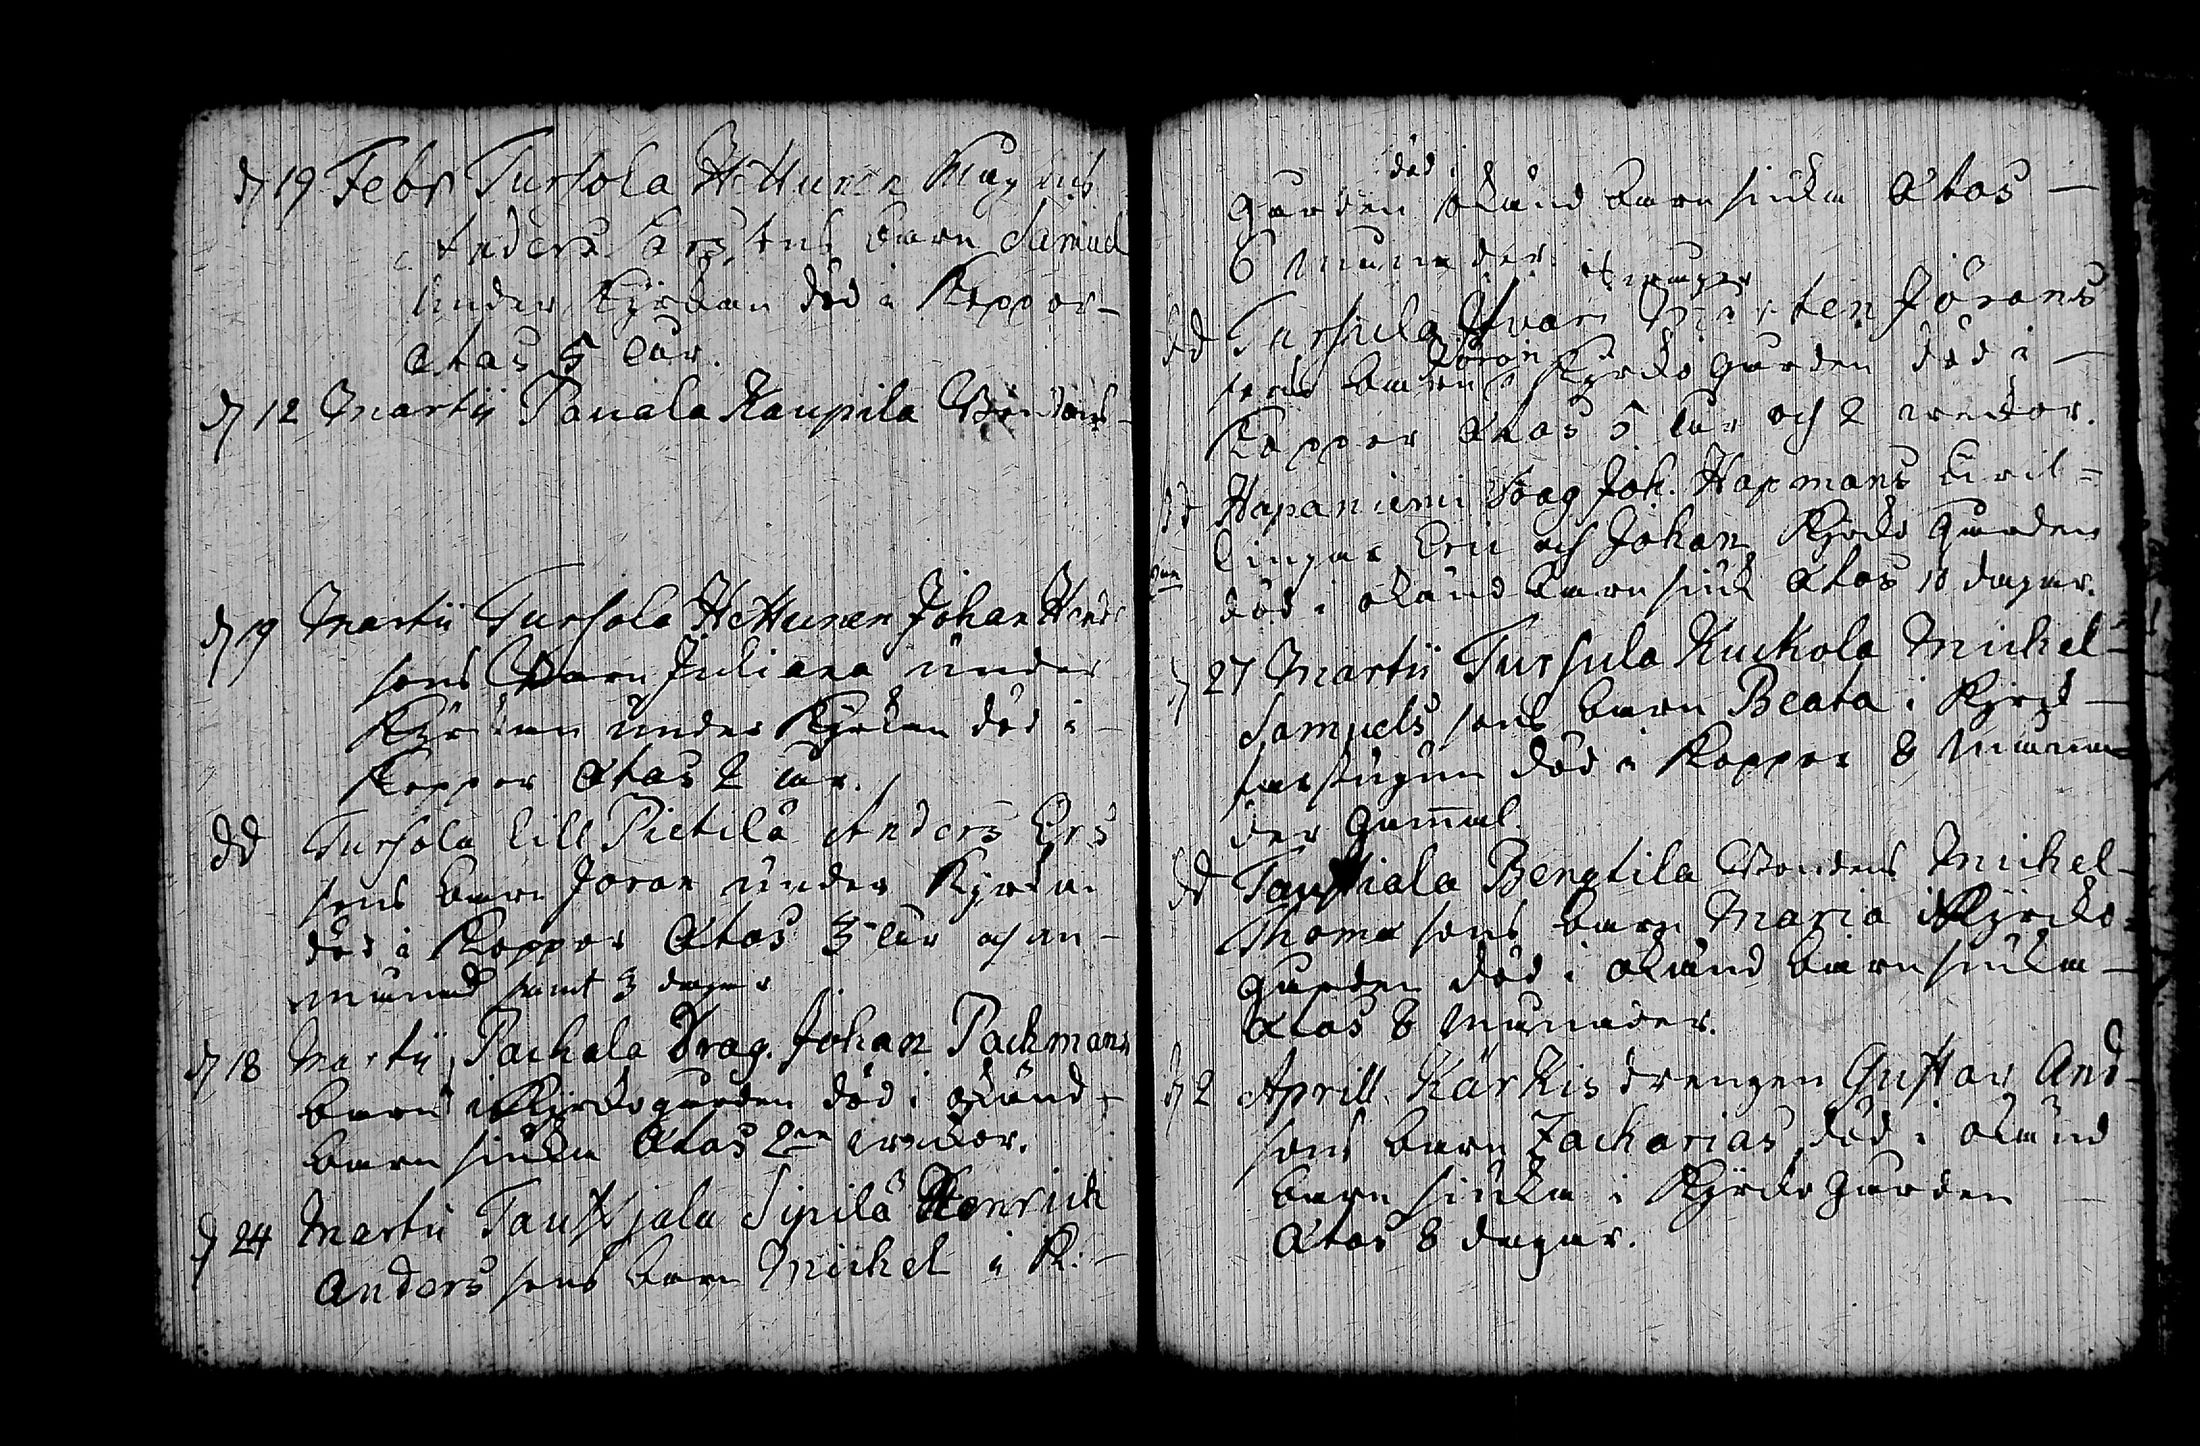 d 19 Febr Tursola Hettunen Magnus
Anders Barn Samuel
under Kyrkan död i Koppor
Ætas 5 åhr.
d 12 Martii Pauala Kaupila
d 9 Martii Tursola Hettunen Johan Hend
sons Barn Juliana under
Kyrkan under Kyrkan död i
Koppor Ætas 2 åhr.
dd Tursola Lill Pietilä Anders Ers
sons barn Jöran under Kyrkan
död i Koppor Ætas 3 åhr och en
månad samt 3 dagar
d 18 Martii Pachala Drag. Johan Pachmans
barn i Kyrkogården död i okänd
barn siuka Ætas 2ne weckor.
d 24 Martii Tauskjala Sipilä Henrich
Anders sons barn Michel i K.
död i
gården okänd barn siuka Ætas
6 månader.
dd Tursula Jörans
sons barn Jöran Kyrko gården död i
Koppor Ætas 5 åhr och 2 weckor.
dd Hapaniemi Drag Joh. Hapmans twil=
lingar Eric och Johan Kyrko gården
död i okänd barn siuk Ætas 10 dagar.
d 27 Martii Tursula Kuckola Michel
Samuels sons barn Beata i Kyrk
farstugun död i Koppor 8 måna
der gammal.
dd Tauskiala Bengtila Bondens Michel
Thomæ sons barn Maria i Kyrcko
gården död i okänd barn siuka
Ætas 8 månader.
d 2 Aprill Kärkis drengen Gustav And
sons barn Zacharias död i okänd
barn siuka i Kyrcko gården
Ætas 8 dagar.